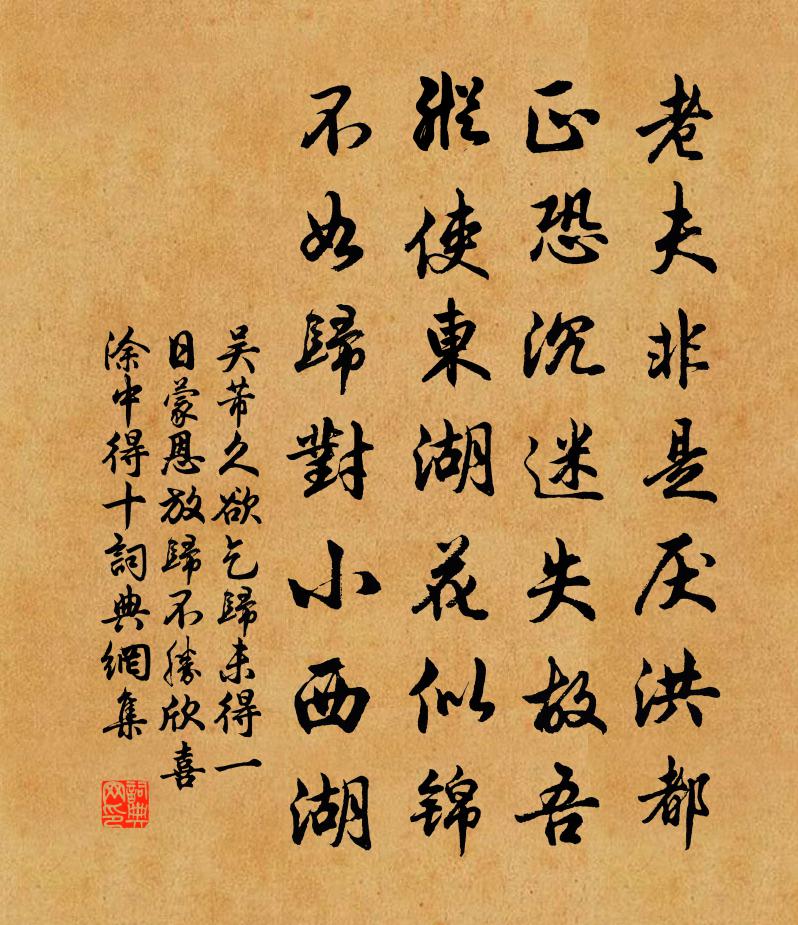 老夫非是厌洪都
正恐沉迷失故吾
縱使東湖花似锦
不如歸對小西湖
吴芾久欲乞歸未得一
日蒙恩放歸不勝欣喜
涂中得十詞典網集
詞典网印